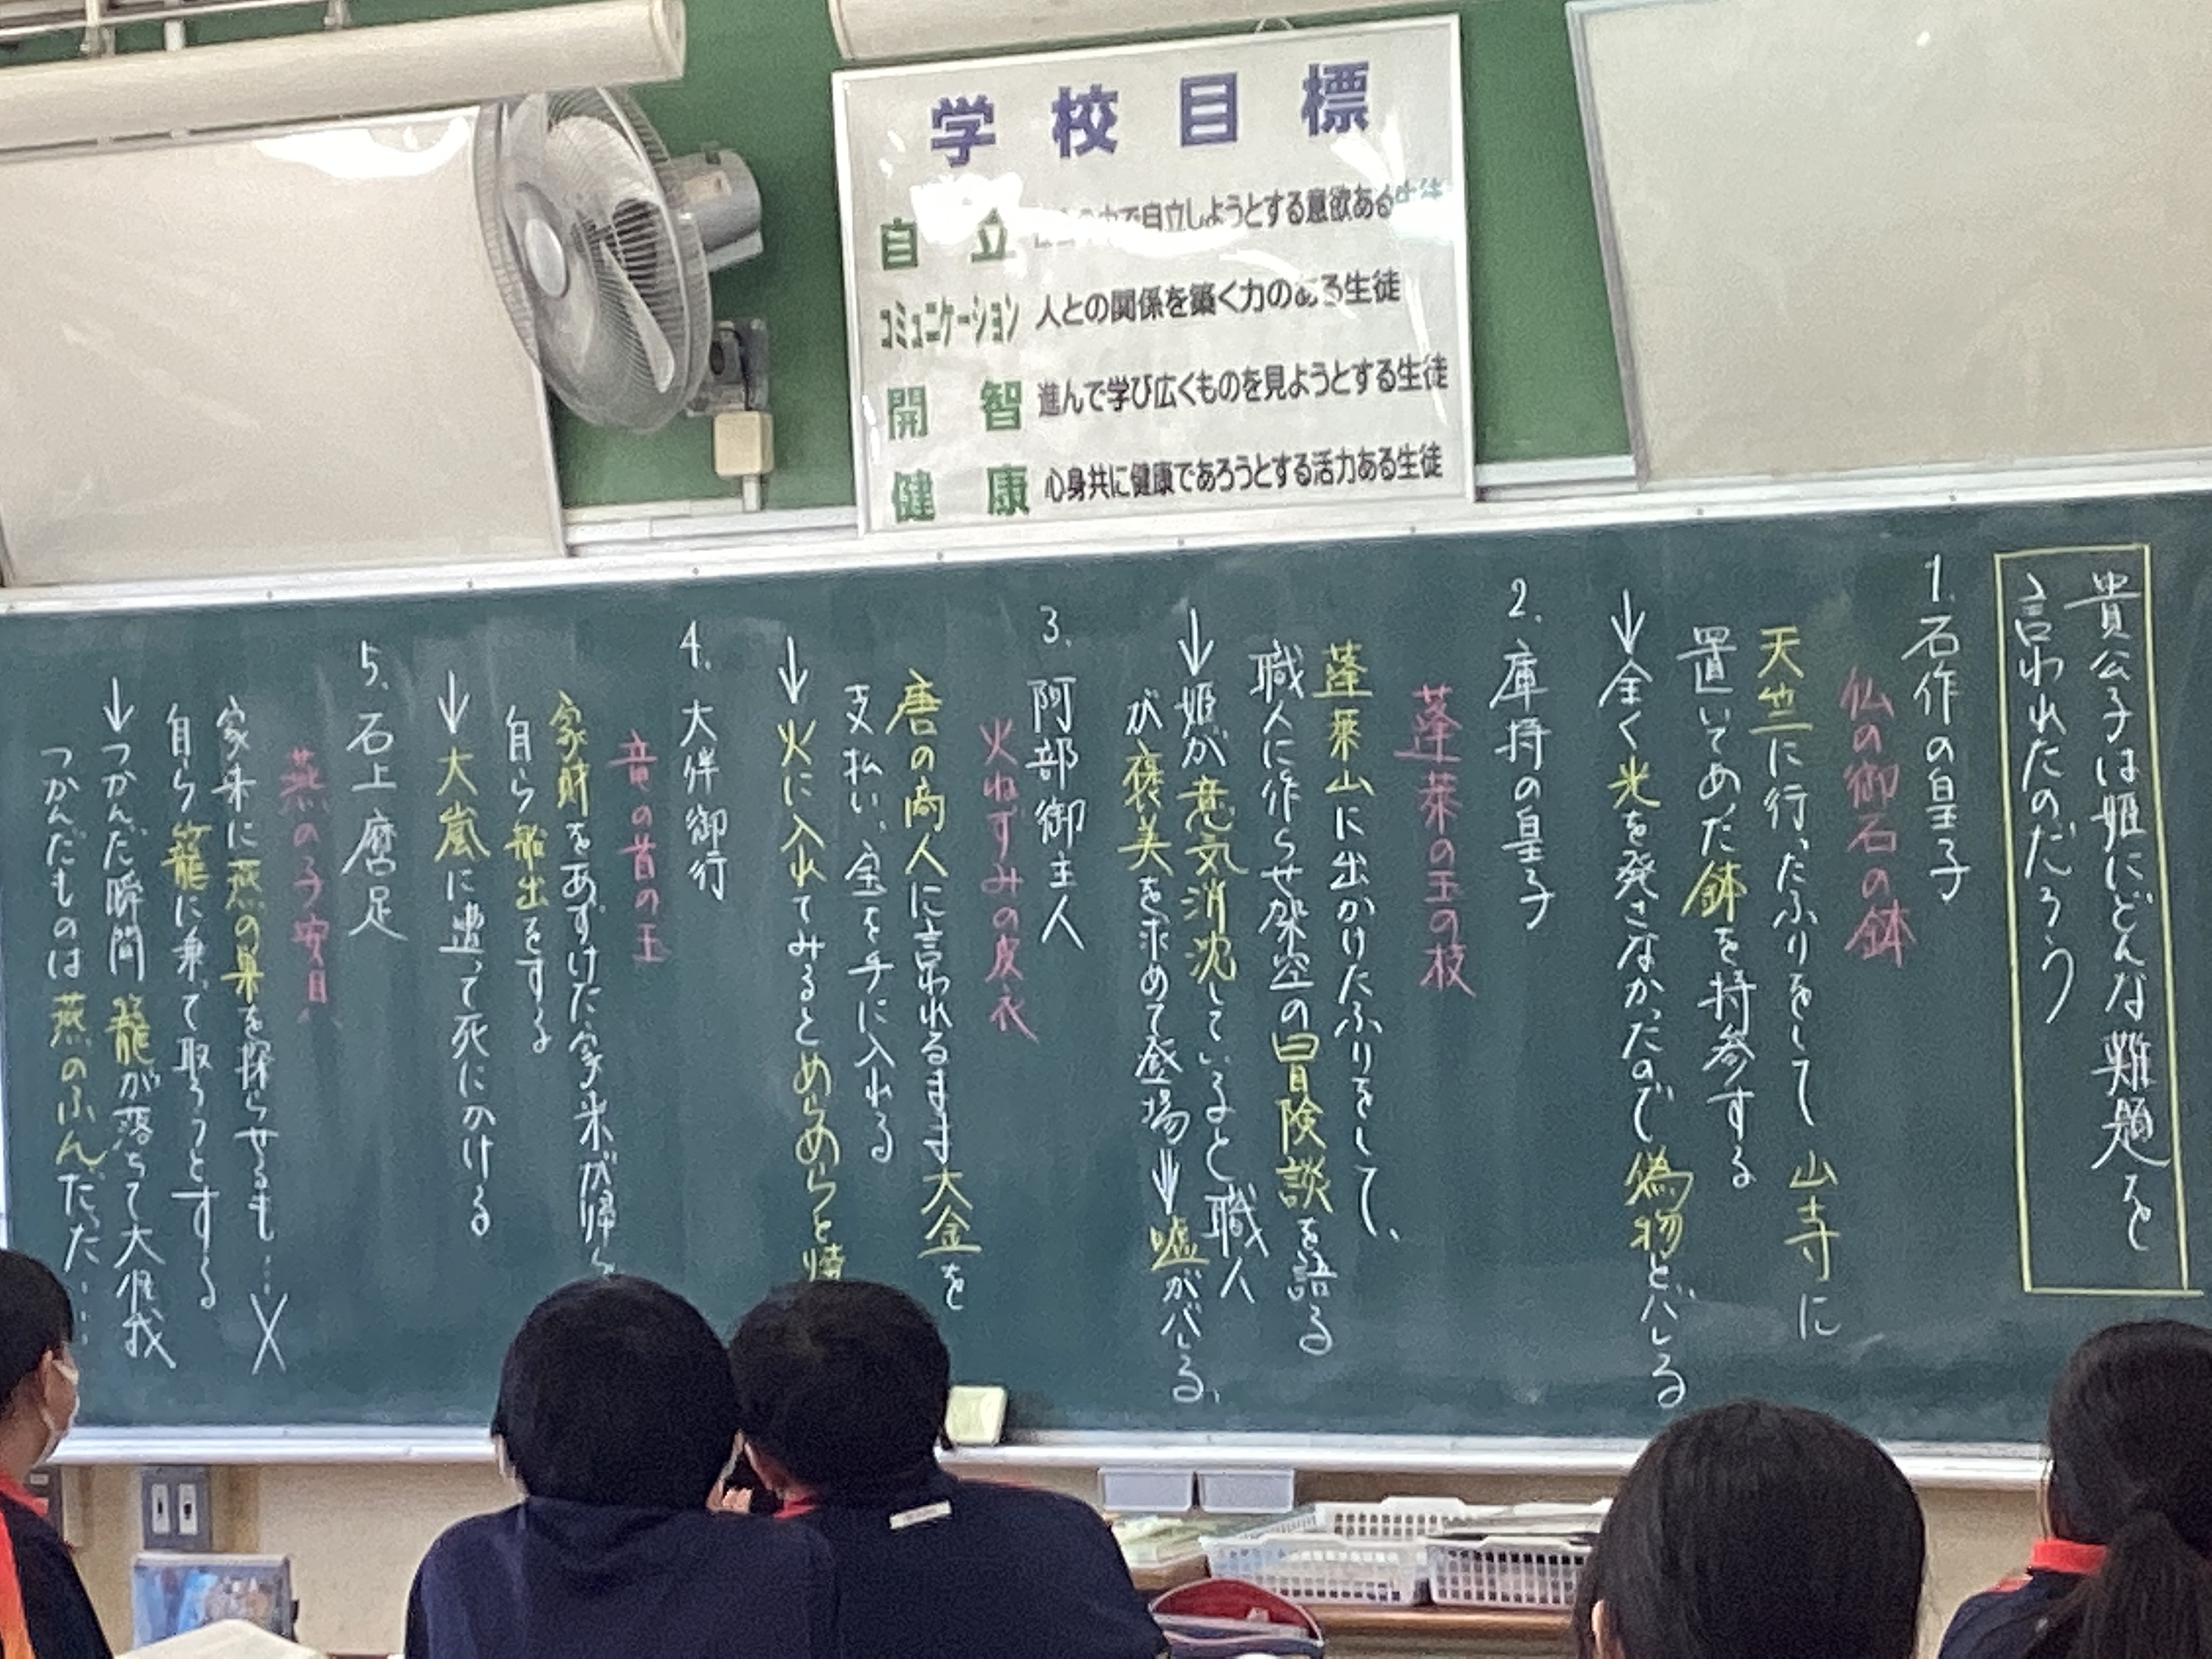 学校目標
自立 で自立しようとする意欲ある生徒
コミュニケーション 人との関係を築く力のある生徒
開智 進んで学び広くものを見ようとする生徒
健康 心身共に健康であろうとする活力ある生徒
貴公子は姫にどんな難題を
言われたのだろう
1. 石作の皇子
仏の御石の鉢
天竺に行ったふりをして 山寺に
置いてあった鉢を持参する
↓全く光を発さなかったので偽物とバレる
2. 庫持の皇子
蓬萊の玉の枝
蓬萊山に出かけたふりをして、
職人に作らせ架空の冒険談を語る
↓姫が意気消沈していると職人
が褒美を求めて登場⇓嘘がバレる、
3. 阿部御主人
火ねずみの皮衣
唐の商人に言われるまま大金を
支払い、金を手に入れる
↓火に入れてみるとめらめらと焼
4. 大伴御行
竜の首の玉
家財をあずけた家来が帰ら
自ら船出をする
↓大嵐に遭って死にかける
5. 石上麿足
燕の子安貝
家来に燕の巣を探らせるも…X
自ら籠に乗って取ろうとする
↓つかんだ瞬間 籠が落ちて大怪我
つかんだものは燕のふんだった……